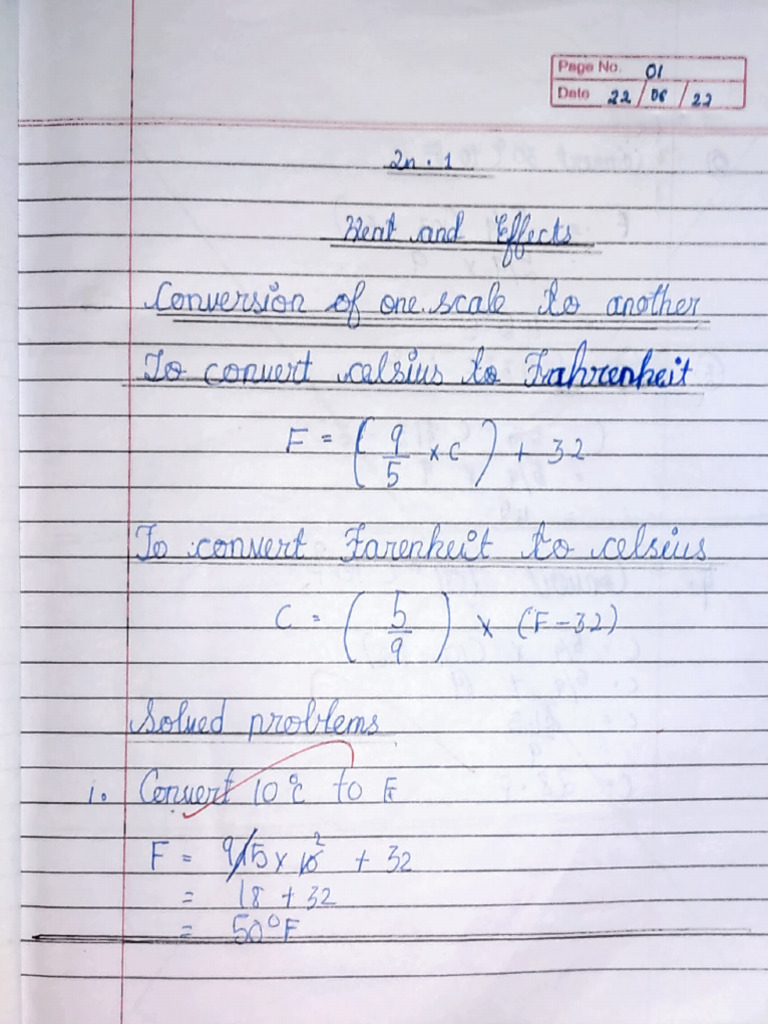 Page No. 01
Date 22/06/22
2n.1
Heat and Effects
Conversion of one scale to another
To convert celsius to Fahrenheit
F = ( 9/5 × C ) + 32
To convert Farenheit to celseius
C = ( 5/9 ) × (F-32)
Solved problems
1. Convert 10°c to F
F = 9/5 × 10 2 + 32
= 18 + 32
= 50°F